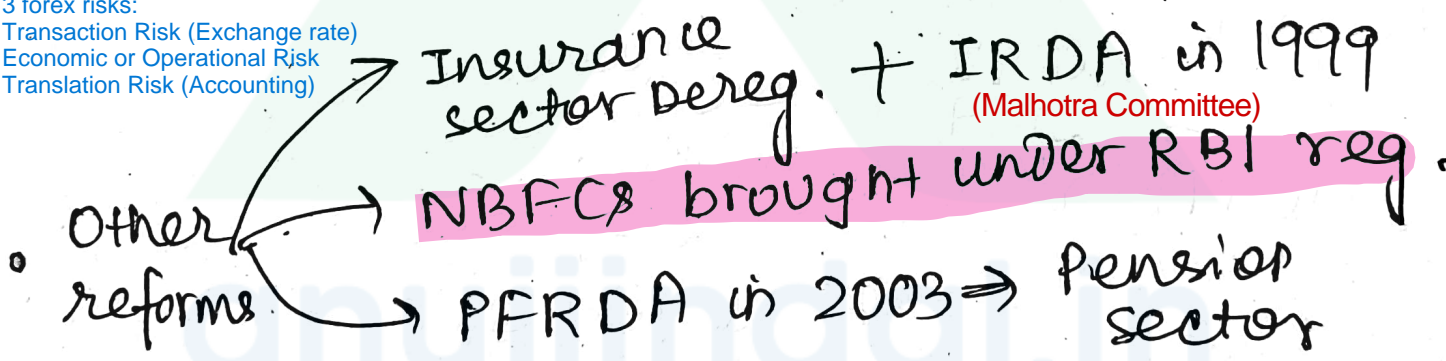 3 forex risks:
Transaction Risk (Exchange rate)
Economic or Operational Risk
Translation Risk (Accounting)
Insurance sector Dereg. + IRDA in 1999
(Malhotra Committee)
NBFCs brought under RBI reg.
• Other reforms
PFRDA in 2003 ⇒ Pension sector
anujjindal.in